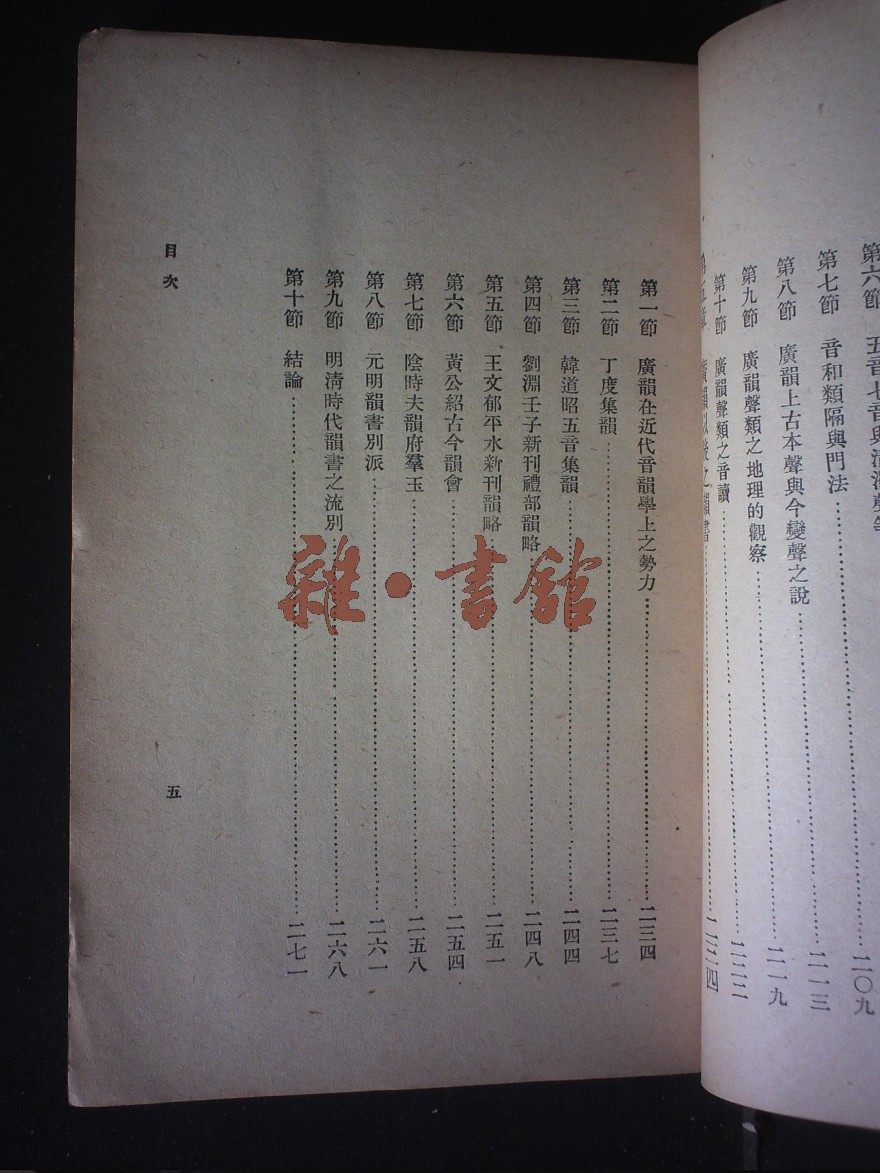 第六節 五音七音與清濁聲等 二〇九
第七節 音和類隔與門法 二一三
第八節 廣韻上古本聲與今變聲之說 二一九
第九節 廣韻聲類之地理的觀察 二二二
第十節 廣韻聲類之音讀 二二四
第五章 廣韻以後之韻書
第一節 廣韻在近代音韻學上之勢力 二三四
第二節 丁度集韻 二三七
第三節 韓道昭五音集韻 二四四
第四節 劉淵壬子新刊禮部韻略 二四八
第五節 王文郁平水新刊韻略 二五一
第六節 黃公紹古今韻會 二五四
第七節 陰時夫韻府羣玉 二五八
第八節 元明韻書別派 二六一
第九節 明清時代韻書之流別 二六八
第十節 結論 二七一
目次
五
雜·書館